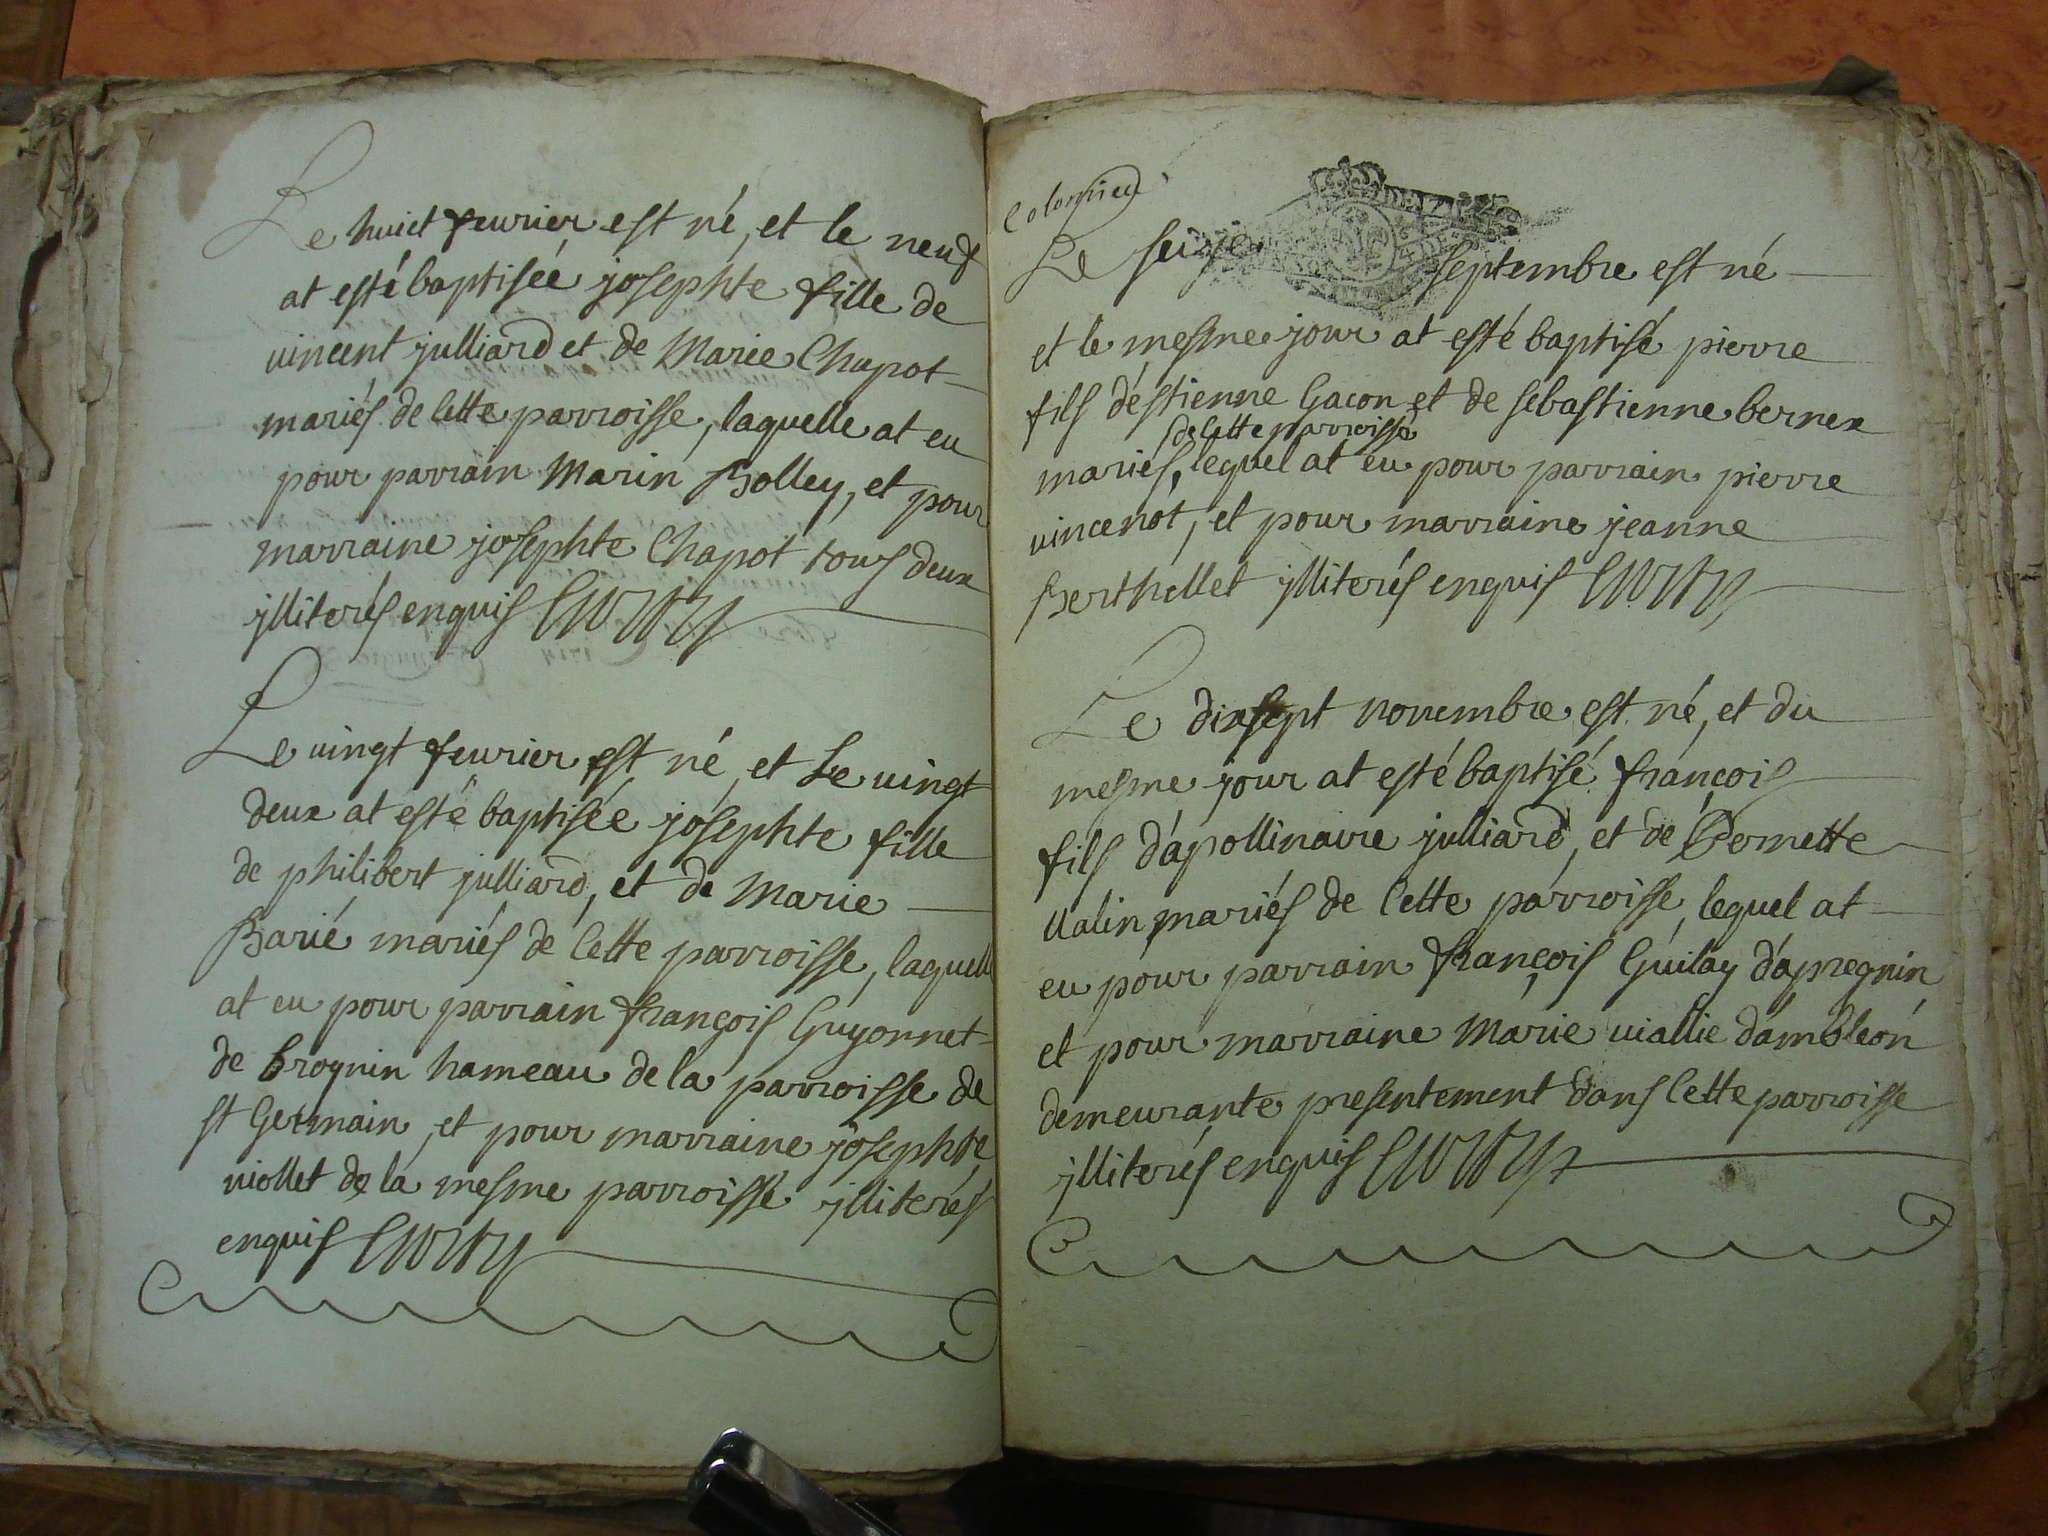 Le huict feurier est né, et le neuf
at esté baptisée josephte fille de
vincent julliard et de Marie Chapot
mariés de Cette parroisse, laquelle at eu
pour parrain Marin Bolley, et pour
marraine josephte Chapot tous deux
jlliterés enquis Curty
Le uingt feurier est né, et Le uingt
deux at esté baptisée josephte fille
de philibert julliard, et de Marie
Barié mariés de Cette parroisse, laquelle
at eu pour parrain françois Guyonnet
de brognin hameau de la parroisse de
st Germain, et pour marraine josephte
uiollet de la mesme parroisse jlliterés
enquis Curty
Colomieu
Le seize septembre est né
et le mesme jour at esté baptisé pierre
fils d'estienne Gacon et de sebastienne bernex
de Cette parroisse
mariés, lequel at eu pour parrain pierre
vincenot, et pour marraine jeanne
Berthellet jlliterés enquis Curty
Le dixsept novembre est né, et du
mesme jour at esté baptisé françois
fils d'apollinaire julliard, et de Pernette
Valin mariés de Cette parroisse, lequel at
eu pour parrain françois Guilay d'apregnin
et pour marraine Marie uiallie d'ambleon
demeurante presentement dans Cette parroisse
jlliterés enquis Curty